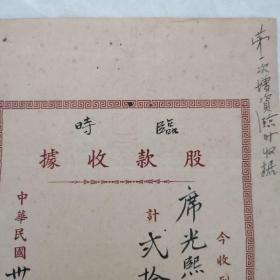 第一次增資臨时收据
臨時
股款收據
今收到
席光熙
計弍拾
中華民國卅